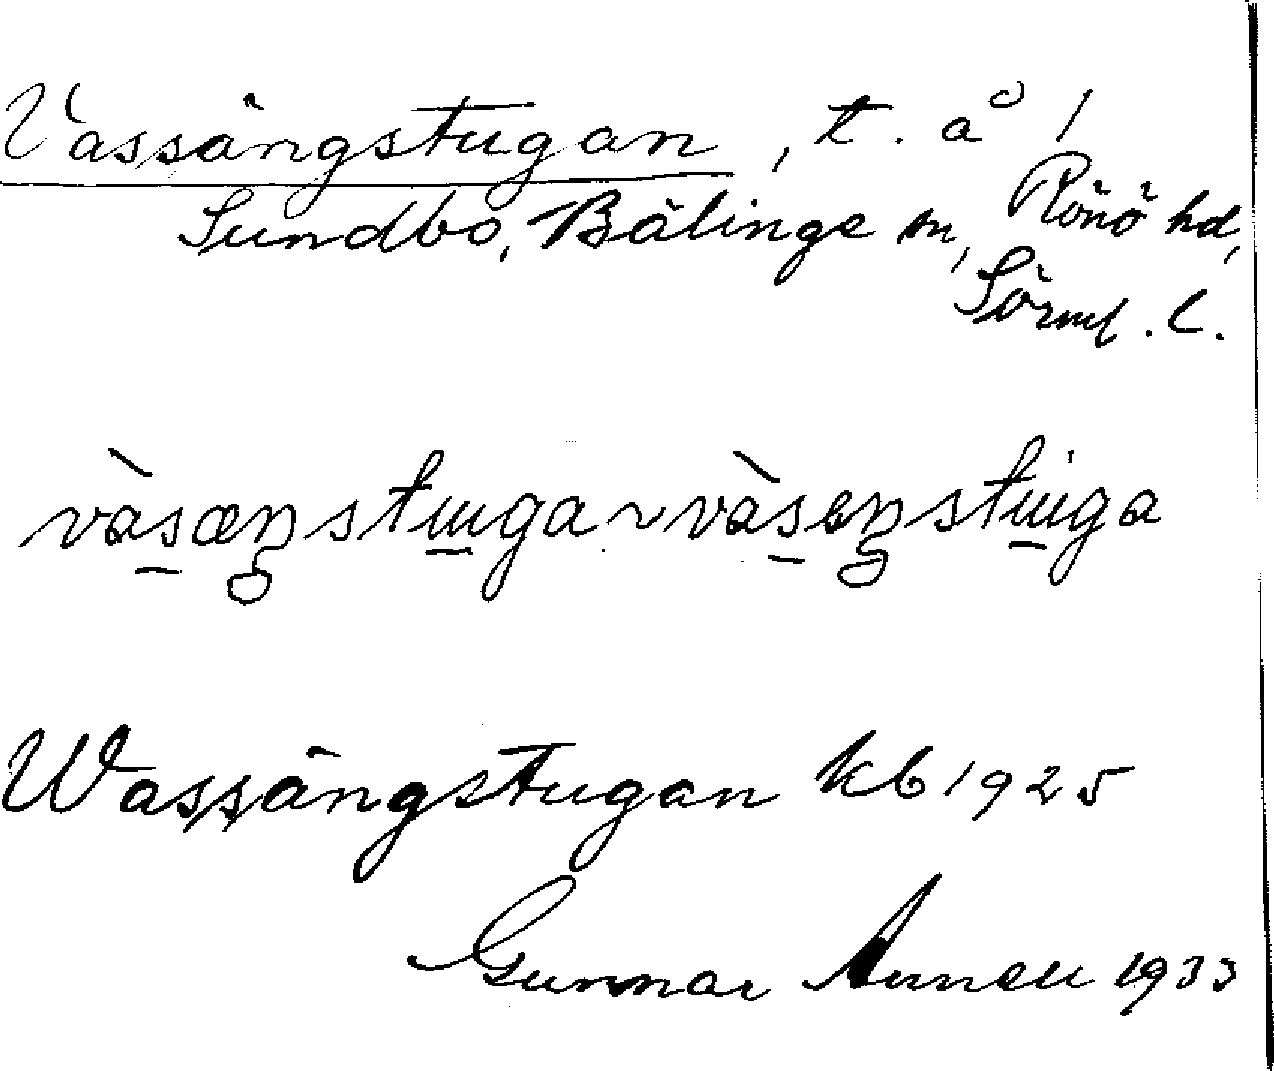 Vassängstugan, t. å /
Sundbo, Bälinge sn, Rönö hd,
Sörml. l.
vàsæŋstɯga ~ vàsenstɯga
Wassängstugan kb 1925
Gunnar Annell 1933